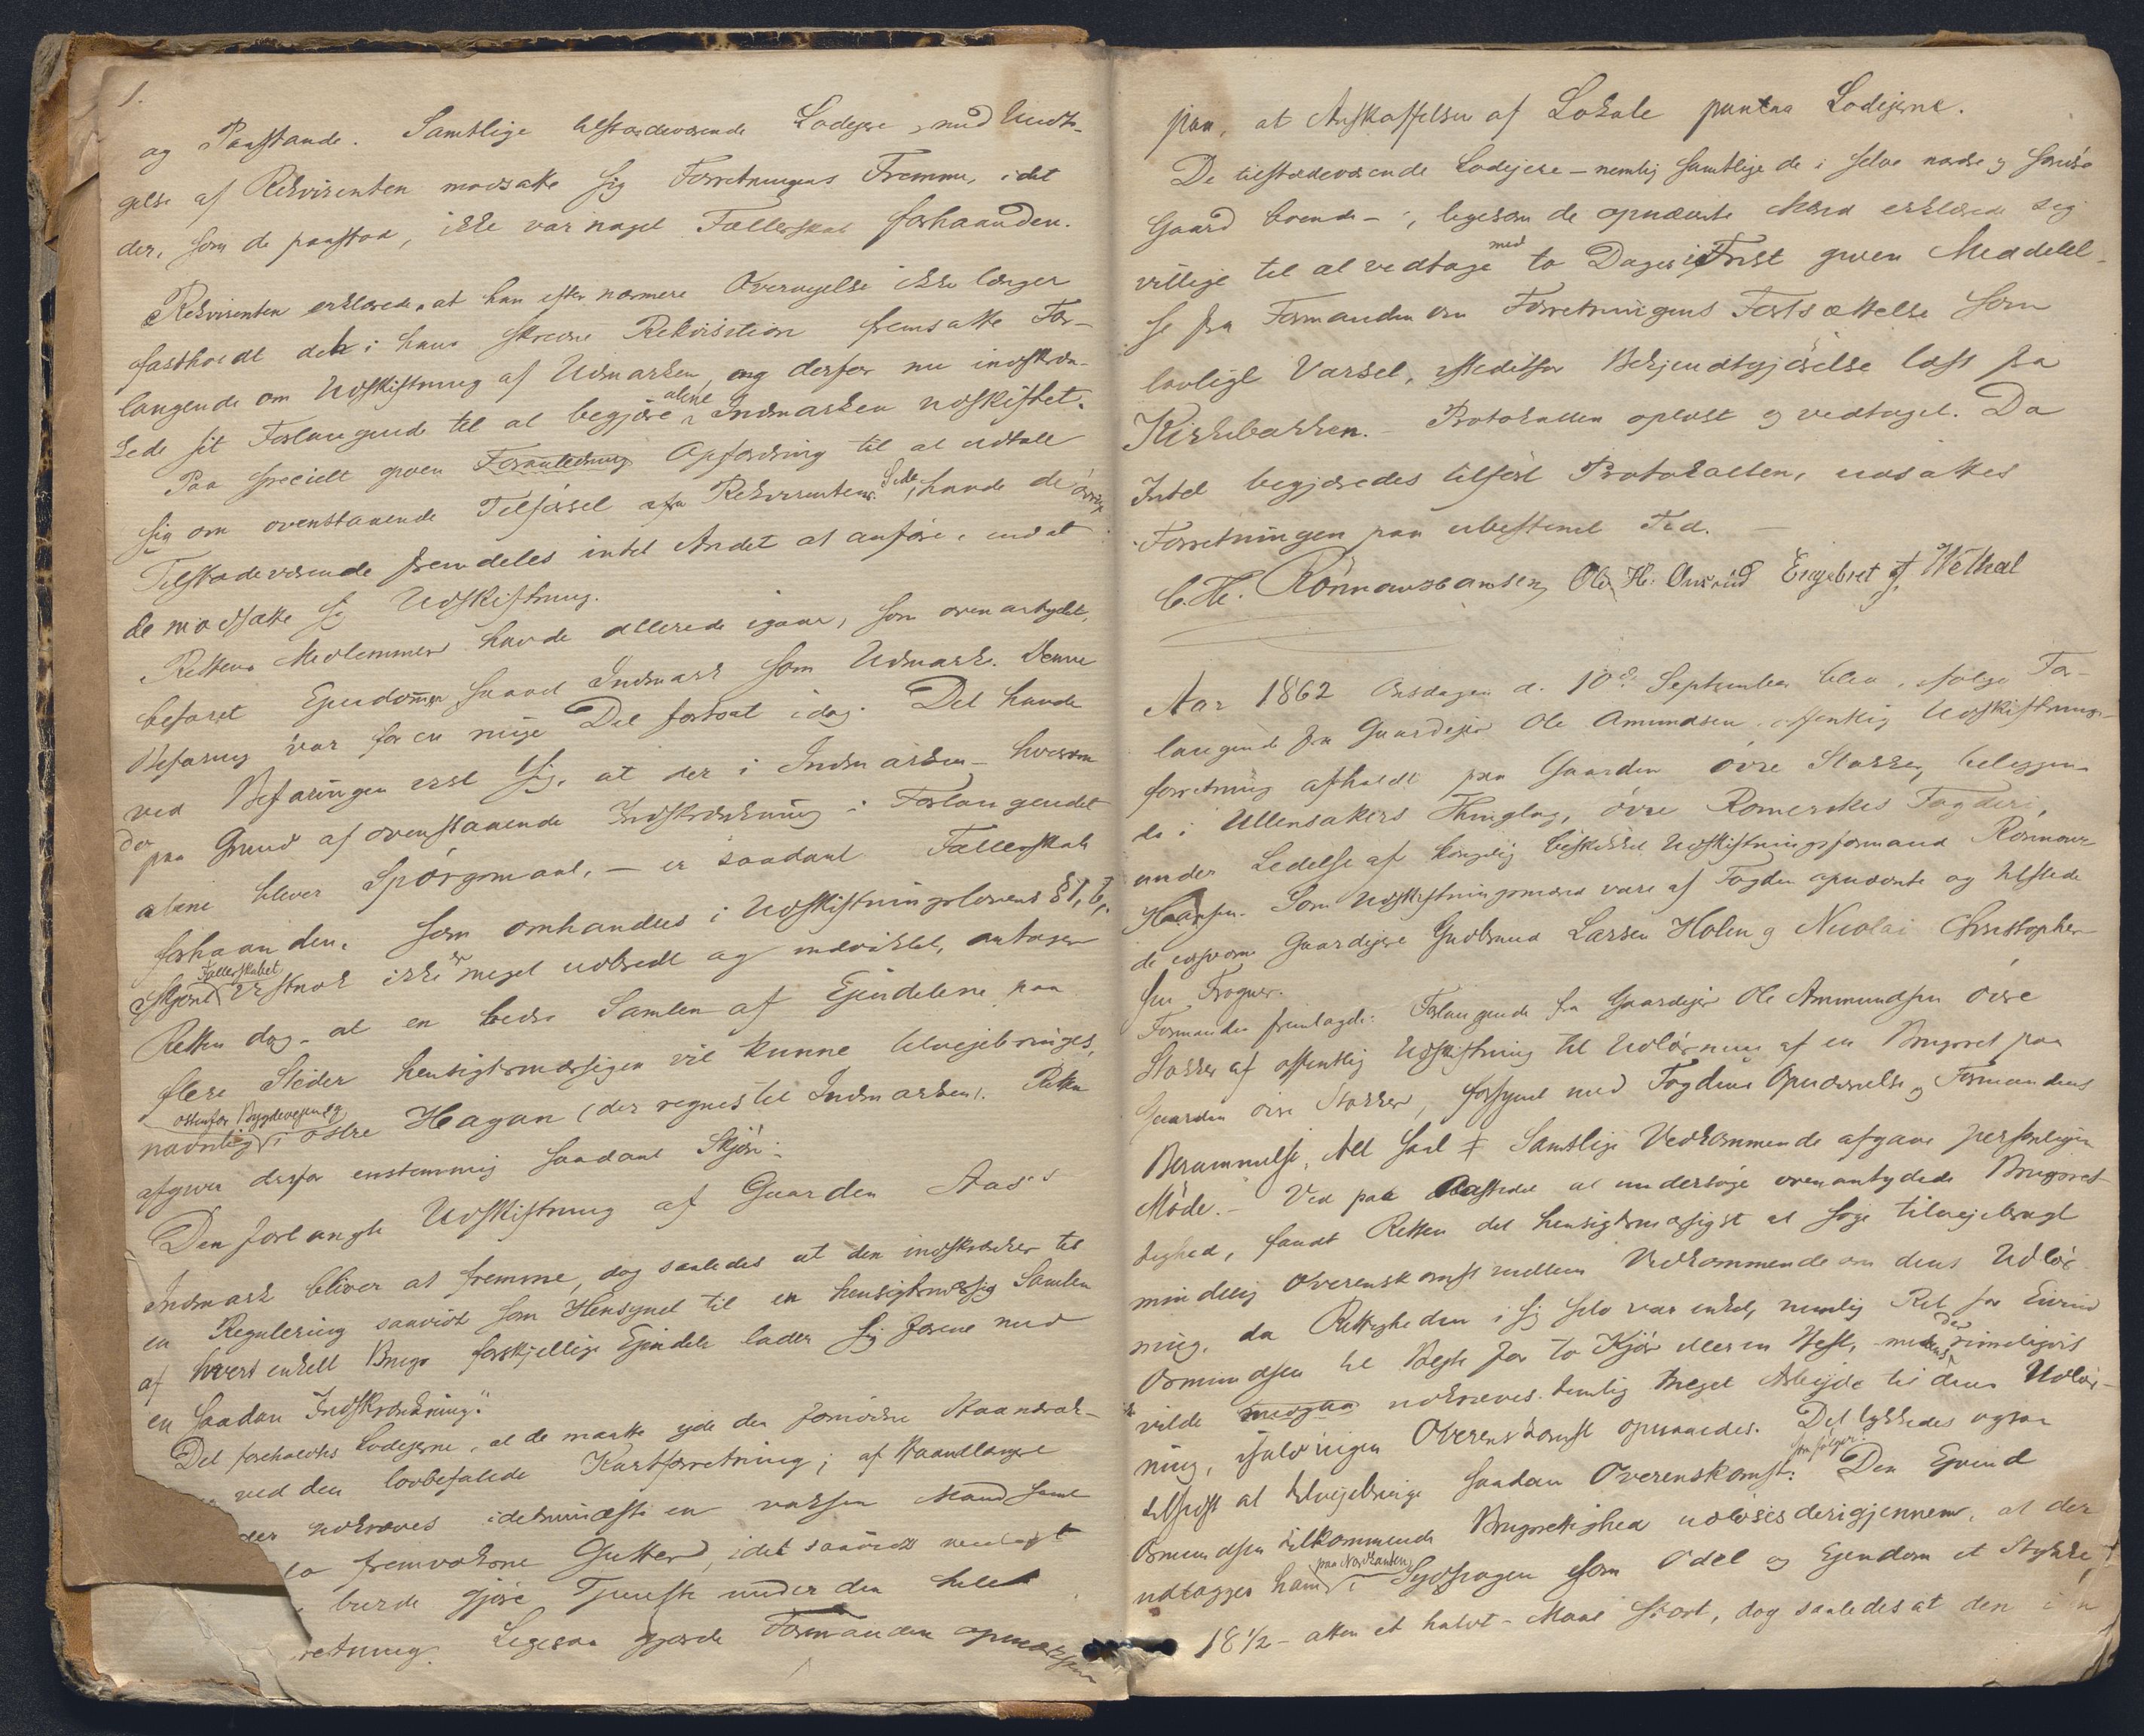 1.
og Paastande. Samtlige tilstædeværende Lodejere, med Undta-
gelse af Rekvirenten modsatte sig Forretningens Fremme, idet
der, som de paastod, ikke var noget Fællesskab forhaanden.
Rekvirenten erklærede, at han efter nærmere Overveielse ikke længer
fastholdt det i hans skrevne Rekvisition fremsatte For-
langende om Udskiftning af Udmarken, og derfor nu indskræn-
kede sit Forlangende til at begjære alene Indmarken udskiftet.
Paa specielt given Foranledning Opfordring til at udtale
sig om ovenstaaende Tilførsel fra Rekvirentens Side, havde de øvrige
Tilstædeværende fremdeles intet Andet at anføre, end at
de modsatte sig Udskiftning.
Rettens Medlemmer havde allerede igaar, som oven antydet,
befaret Ejendommen saavel Indmark som Udmark. Denne
Befaring var for en nøie Del fortsat idag. Det havde
ved Befaringen vist sig, at der i Indmarken – hvorom
der paa Grund af ovenstaaende Indskrænkning i Forlangendet
alene bliver Spørgsmaal, – er saadant Fællesskab
forhaanden, som omhandles i Udskiftningslovens § 1, b,
skjønt Fællesskabet vistnok ikke er meget udbredt og indviklet, antager
Retten dog, at en bedre Samlen af Ejendelene paa
flere Steder hensigtsmæssigen vil kunne tilvejebringes,
navnlig østenfor Bygdevejen og i østre Hagan (der regnes til Indmarken). Retten
afgiver derfor enstemmig saadant Skjøn:
Den forlangte Udskiftning af Gaarden Aas's
Indmark bliver at fremme, dog saaledes at den indskrænkes til
en Regulering saavidt som Hensynet til en hensigtsmæssig Samlen
af hvert enkelt Brugs forskjellige Ejendele lader sig forene med
en saadan Indskrænkning."
Det foreholdtes Lodejerne, at de maatte yde den fornødne Haandræk-
ved den lovbefalede Kartforretning; af Haandlangere
der udkræves idetmindste en voksen Mand samt
to fremvoksne Gutter, idet saavidt muligt
burde gjøre Tjeneste under den hele
retning. Ligesaa gjorde Formanden opmærksom
paa, at Anskaffelsen af Lokale paalaa Lodejerne.
De tilstædeværende Lodejere – nemlig samtlige de i selve nævnte
Gaard boende –, ligesom de opnævnte Mænd erklærede sig
villige til at vedtage med to Dages Frist given Meddelel-
se fra Formanden om Forretningens Fortsættelse som
lovligt Varsel, istedetfor Bekjendtgjørelse læst fra
Kirkebakken. – Protokollen oplæst og vedtaget. Da
Intet begjæredes tilført Protokollen, udsattes
Forretningen paa ubestemt Tid. –
Ole H. Engebret Wethal
Aar 1862 Onsdagen d. 10de September blev, ifølge For-
langende fra Gaardejer Ole Amundsen, offentlig Udskiftnings-
forretning afholdt paa Gaarden øvre Stokker, beliggen-
de i Ullensakers Thinglag, øvre Romerikes Fogderi,
under Ledelse af kongelig beskikket Udskiftningsformand Rønnow
Hansen. Som Udskiftningsmænd vare af Fogden opnævnte og tilstede
de Gaardejere Gudbrand Larsen Holm og Nicolai Christopher-
sen Frogner.
Formanden fremlagde: Forlangende fra Gaardejer Ole Ammundsen øvre
Stokker af offentlig Udskiftning til Udløsning af en Brugsret paa
Gaarden øvre Stokker, forsynet med Fogdens Opnævnelse og Formandens
Berammelse, Alt saal. ‡ Samtlige Vedkommende afgave personligen
Møde. – Ved paa Aastedet at undersøge ovenantydede Brugsret-
tighed, fandt Retten det hensigtsmæssigst at søge tilvejebragt
mindelig Overenskomst mellem Vedkommende om dens Udløs-
ning, da Rettigheden i sig selv var enkel, nemlig Ret for Eivind
Osmundsen til Beite for to Kjør eller en Hest, medens der rimeligvis
vilde udkræves temlig meget Arbejde til dens Udløs-
ning, ifald ingen Overenskomst opnaaedes. Det lykkedes ogsaa
tilsidst at tilvejebringe saadan Overenskomst, som følger: Den Ejvind
Osmundsen tilkommende Brugsrettighed udløses derigjennem, at der
udlægges ham paa Nordkanten i som Odel og Ejendom et Stykke,
18 1/2 – atten et halvt – Maal stort, dog saaledes at den i